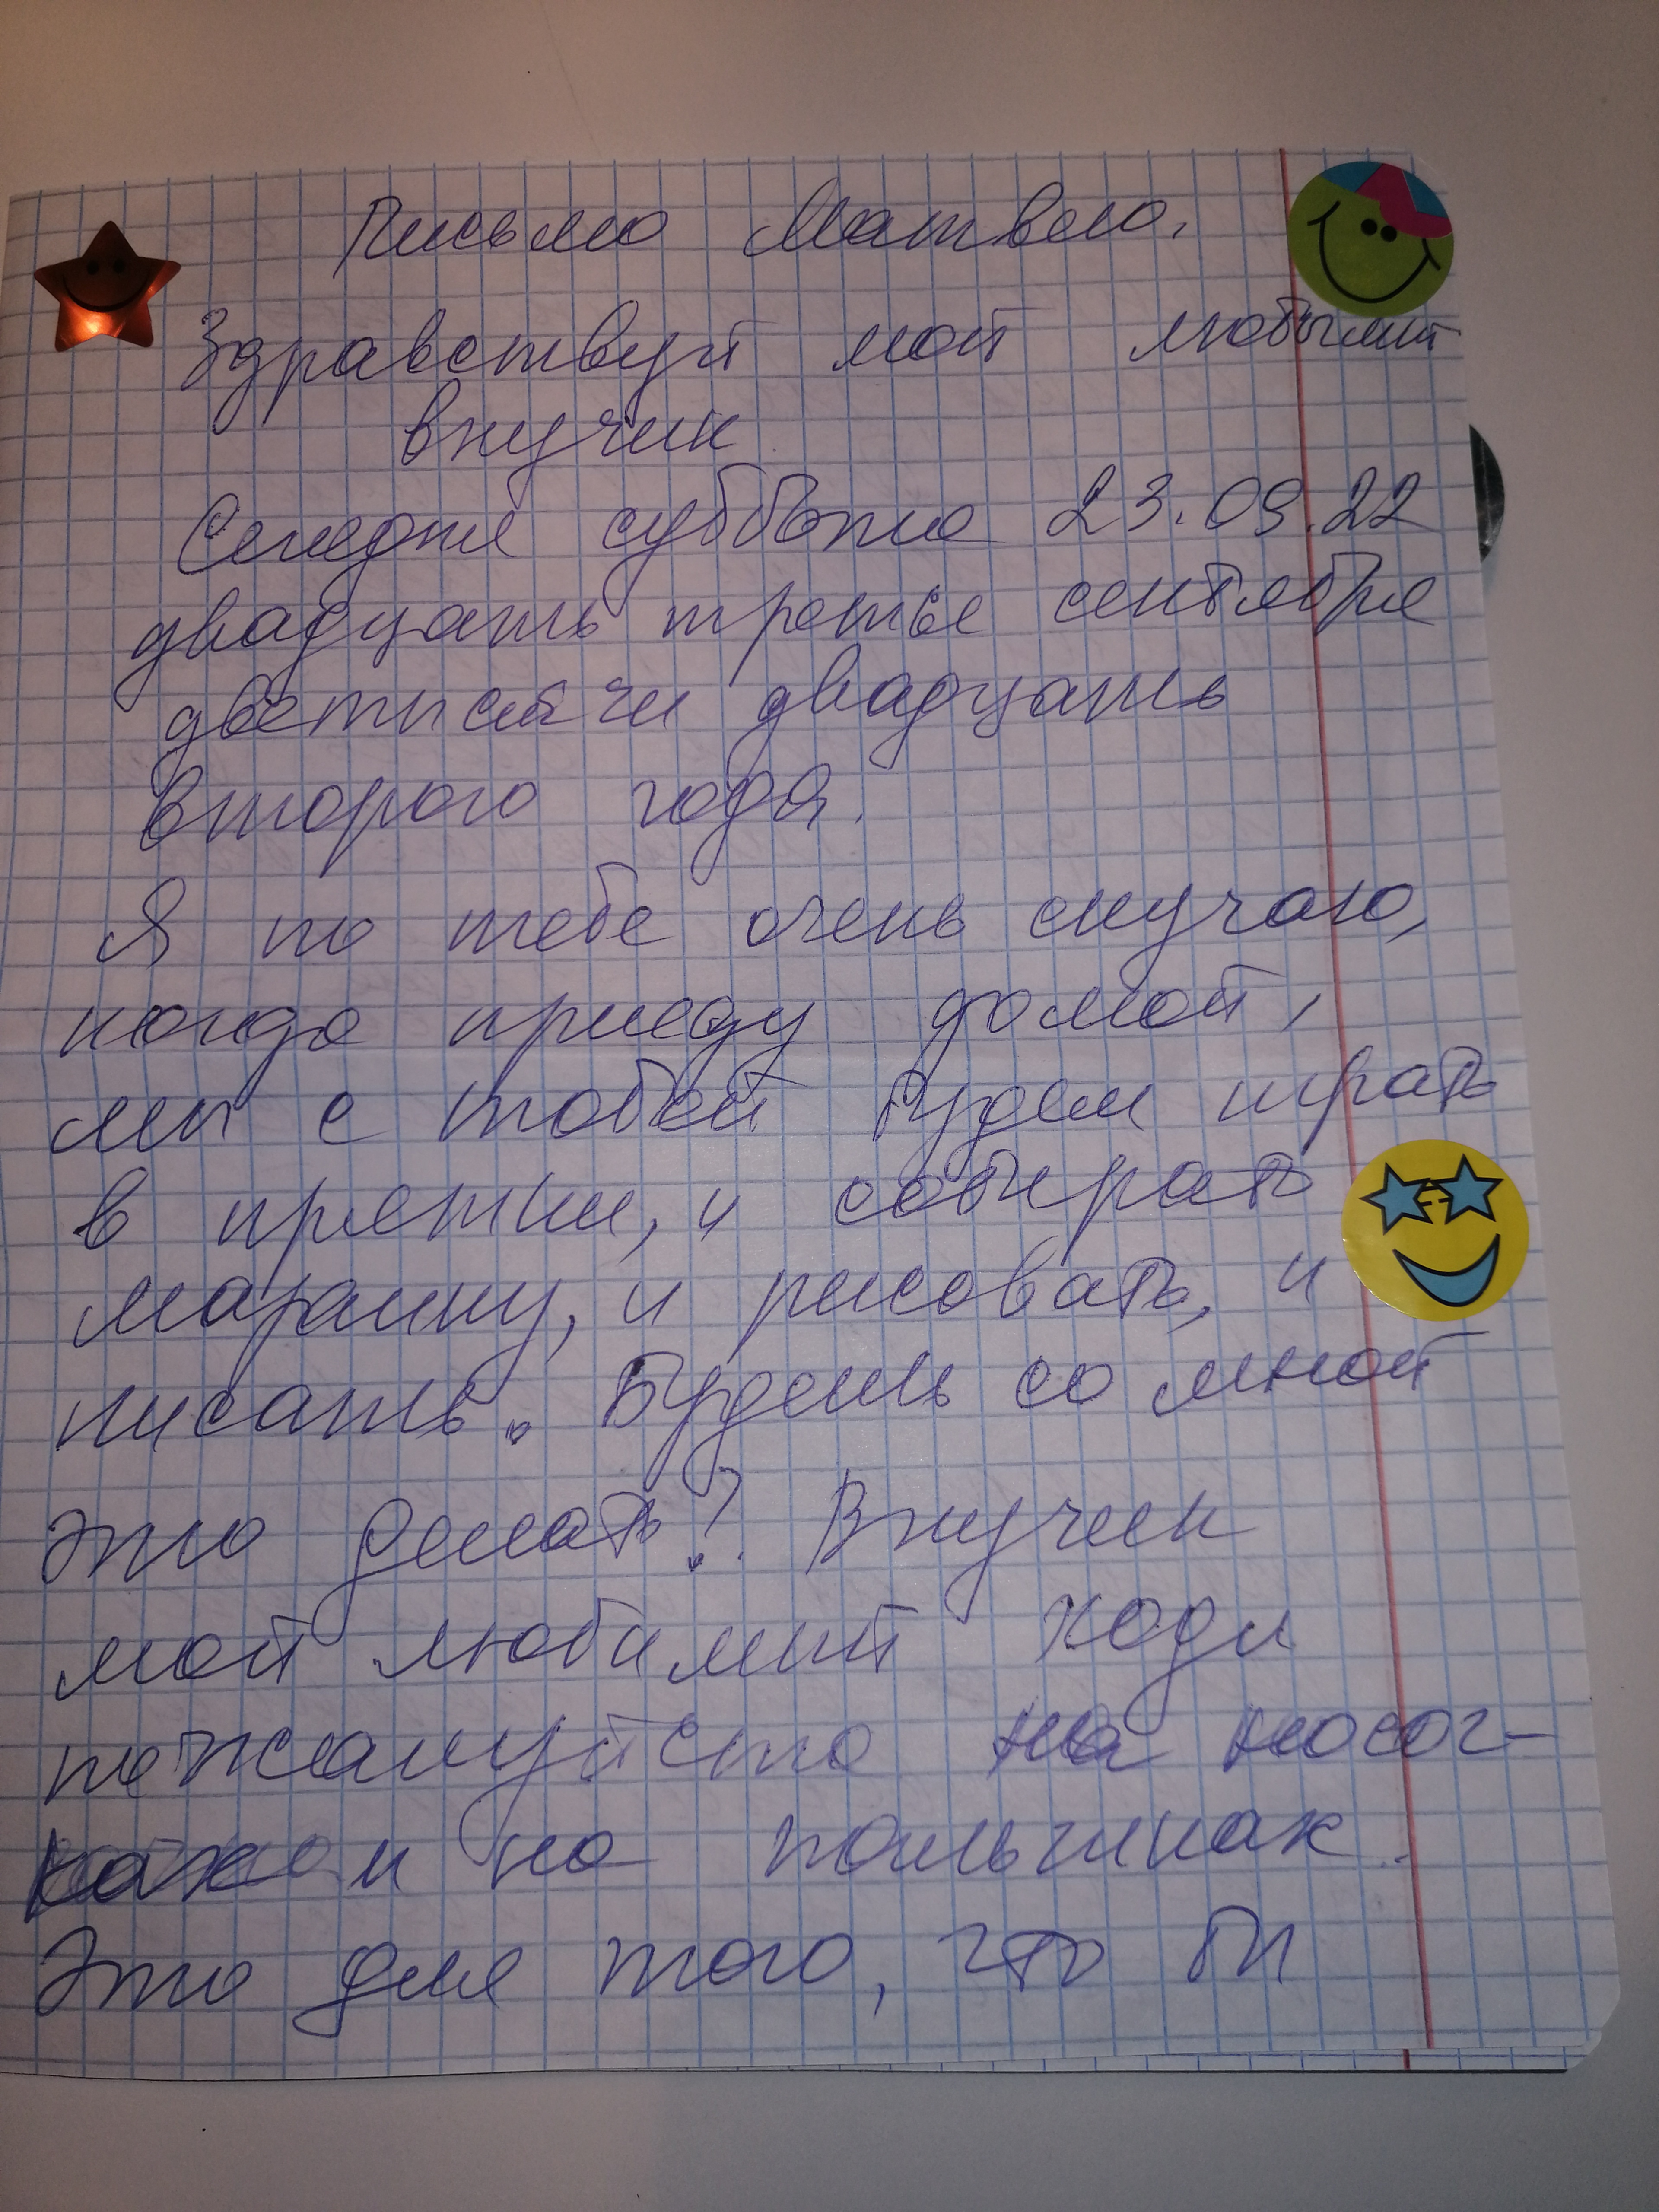 Письмо Матвею.
Здравствуй мой любымый
внучик
Сегодня суббота 23.09.22
двадцать третье сентября
дветысячи двадцать
второго года.
Я по тебе очень скучаю,
когда приеду домой,
мы с тобой будем играть
в прятки, и собирать
машину, и рисовать, и
писать. Будешь со мной
это делать? Внучек
мой любимый ходи
пожалуйста на носоч-
ках и на пальчиках.
Это для того, что бы